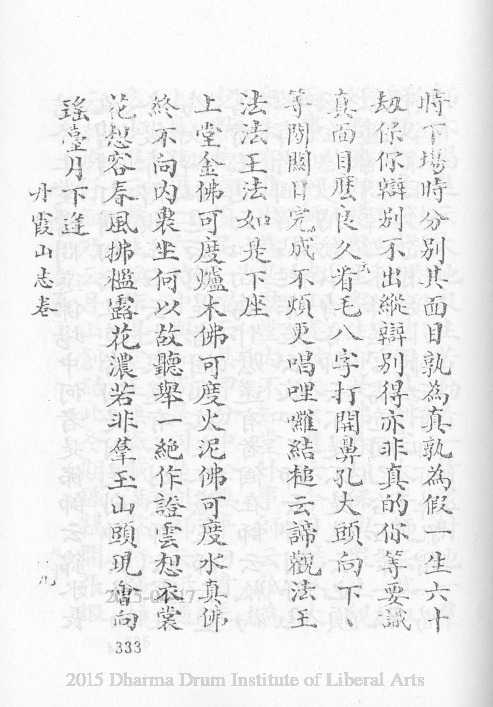 時下場時分別其面目孰為真孰為假一生六十
刼你你辯別不出縱辯別得亦非真的你等要識
真面目麼良久省毛八字打開鼻孔大頭向下、
等閒關目完成不煩更唱哩囉結槌云諦觀法王
法法王法如是下座
上堂金佛可度爐木佛可度火泥佛可度水真佛
終不向內裏坐何以故聽舉一絶作證雲想衣裳
花想容春風拂檻露花濃若非羣玉山頭現會向
瑤臺月下逢
丹霞山志卷
333
2015 Dharma Drum Institute of Liberal Arts